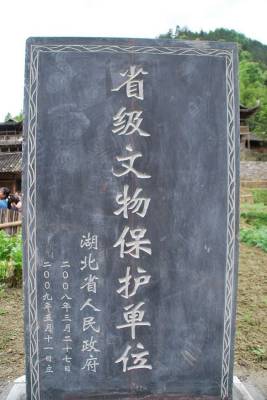 省级文物保护单位
湖北省人民政府
二00八年三月二十七日
二00九年五月十一日立